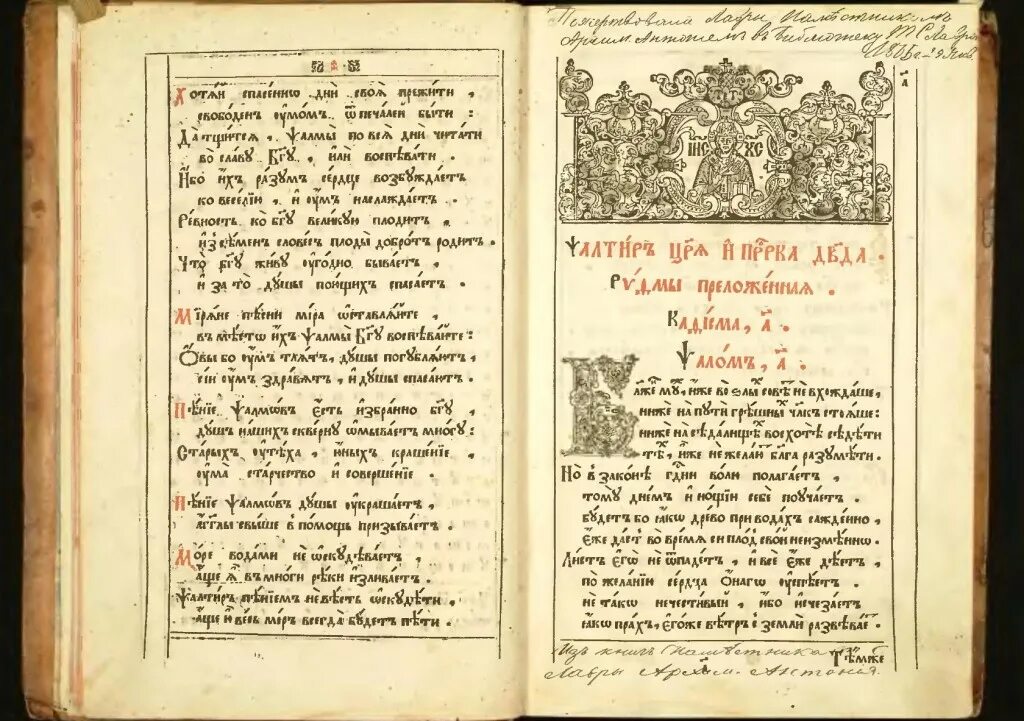 Хотяй спасенно дни своя прежити,
свободен умом ѿ печалей быти:
Да тщится, Ѱалмы по вся дни читати
во славу Бг҃у, или воспѣвати.
Ибо их разум сердце возбуждает
ко веселїи, и ум наслаждает.
Ревность ко бг҃у великую плодит,
из сѣмен словес плоды доброт родит.
Что бг҃у живу угодно бывает,
и за то душы поющих спасает.
Мїряне пѣсни мїра ѡставляйте,
в мѣсто их Ѱалмы Бг҃у воспѣвайте:
Ѻвы бо ум тлят, душы погубляют,
сїи ум здравят, и душы спасают.
Пѣнїе Ѱалмѡв есть избранно бг҃у,
душ наших скверну ѡмывает многу:
Старых утѣха, юных крашенїе,
ума старчество и совершенїе.
Пѣнїе Ѱалмѡв душы украшает,
агг҃лы свыше в помощь призывает.
Море водами не ѡскудѣвает,
аще ѧ в многи рѣки изливает.
Ѱалтир пѣнїем не вѣсть ѡскудѣти,
аще и весь мїр всегда будет пѣти.
Пожертвована Лавры Намѣстникомъ
Архим. Антонїемъ въ библїотеку
а҃
ІИ҃С ХС҃
Ѱалтирь цр҃ѧ и пр҃рка дв҃да.
Риѳмы преложенная.
Каѳїсма, а҃.
Ѱалом, а҃.
Блажен муж, иже во злых совѣт не вхождаше,
ниже на пути грѣшных человѣк стояше:
ниже на сѣдалищѣ восхотѣ сѣдѣти
тѣх, иже не желают блага разумѣти.
Но в законѣ гд҃ни волю полагает,
тому днем и нощїю себе поучает.
Будет бо якѡ древо при водах сажденно,
еже дает во время си плод свой неизмѣнно.
Лист егѡ не ѿпадет, и все еже дѣет,
по желанїю сердца ѻнагѡ успѣет.
не такѡ нечестивый, ибо изчезает
якѡ прах, егоже вѣтр с земли развѣвает
Тѣмже
Изъ книгъ Намѣстника
Лавры Архим. Антонїя.